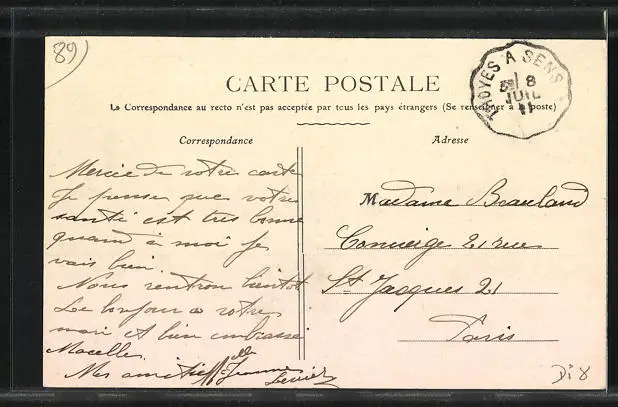 89
CARTE POSTALE
La Correspondance au recto n'est pas acceptée par tous les pays étrangers (Se renseigner à la poste)
TROYES A SENS
8
JUIL
11
Correspondance
Adresse
Mercie de votre carte
Je pense que votre
santé est tres bonne
quand à moi je
vais bien.
Nous rentron bientot
Le bonjour a votre
mari et bien embrasse
Macelle.
Mes amitiés Mlle Jeanne
Madame
Concierge 21 rue
St Jacques 21
Paris